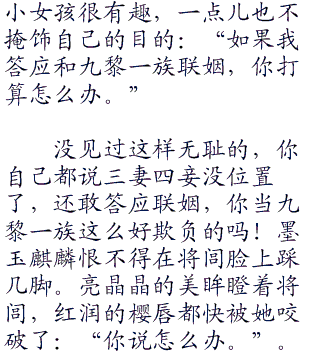 小女孩很有趣，一点儿也不
掩饰自己的目的：“如果我
答应和九黎一族联姻，你打
算怎么办。”
没见过这样无耻的，你
自己都说三妻四妾没位置
了，还敢答应联姻，你当九
黎一族这么好欺负的吗！墨
玉麒麟恨不得在将闾脸上踩
几脚。亮晶晶的美眸瞪着将
闾，红润的樱唇都快被她咬
破了：“你说怎么办。”。